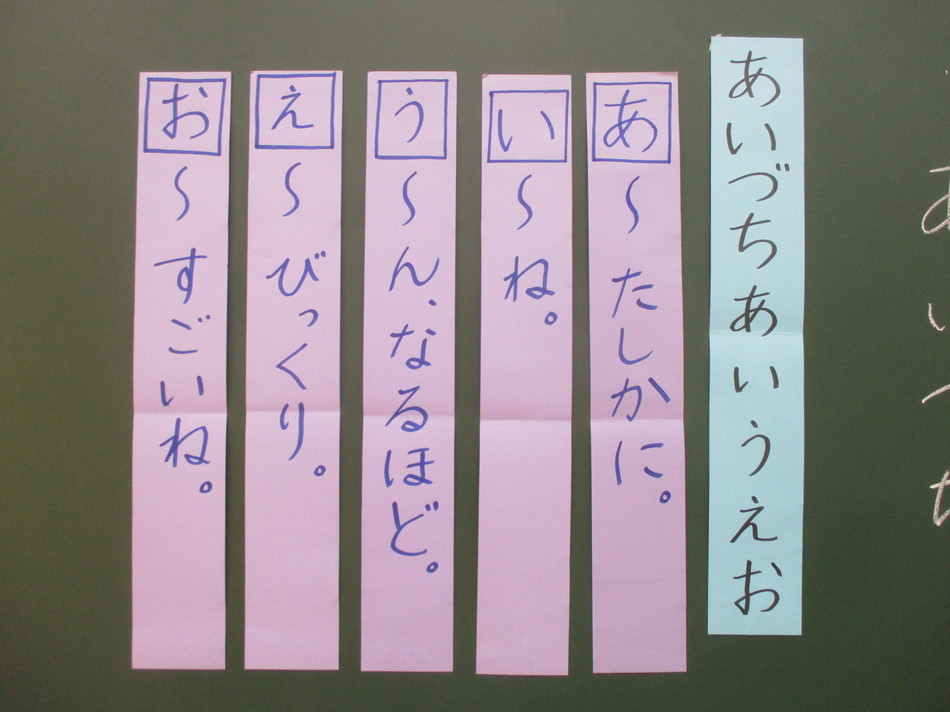 あいづちあいうえお
あ～たしかに。
い～ね。
う～ん、なるほど。
え～びっくり。
お～すごいね。